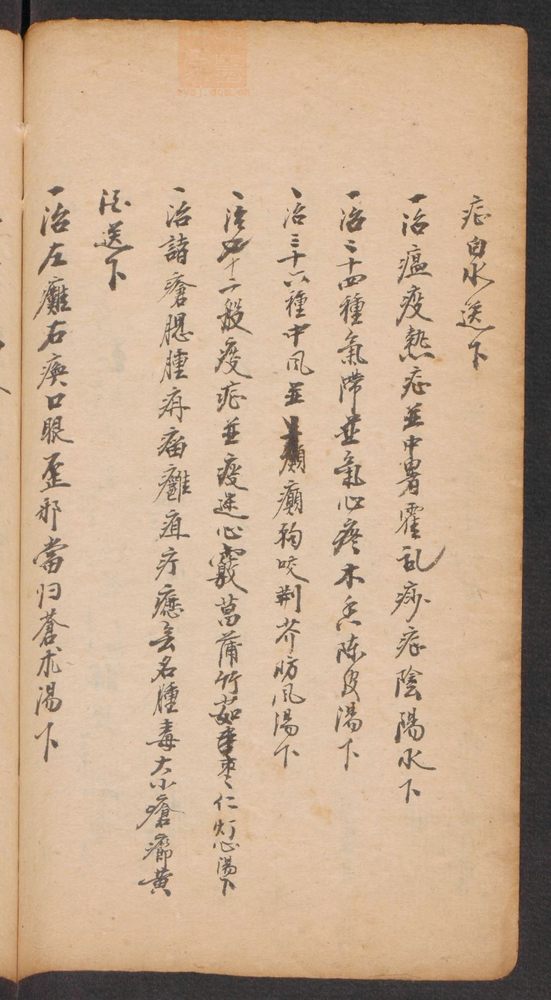 症白水送下
一治瘟疫熱症並中暑霍乱痧症陰陽水下
一治二十四種氣滯並氣心疼木香陳皮湯下
一治三十六種中風並癲癇狗咬荆芥防風湯下
一治七十二般痰症並痰迷心竅菖蒲竹茹棗仁灯心湯下
一治諸瘡腮腫癰疽疔無名腫毒大小瘡癤黄
酒送下
一治左癱右瘓口眼歪邪當归蒼朮湯下